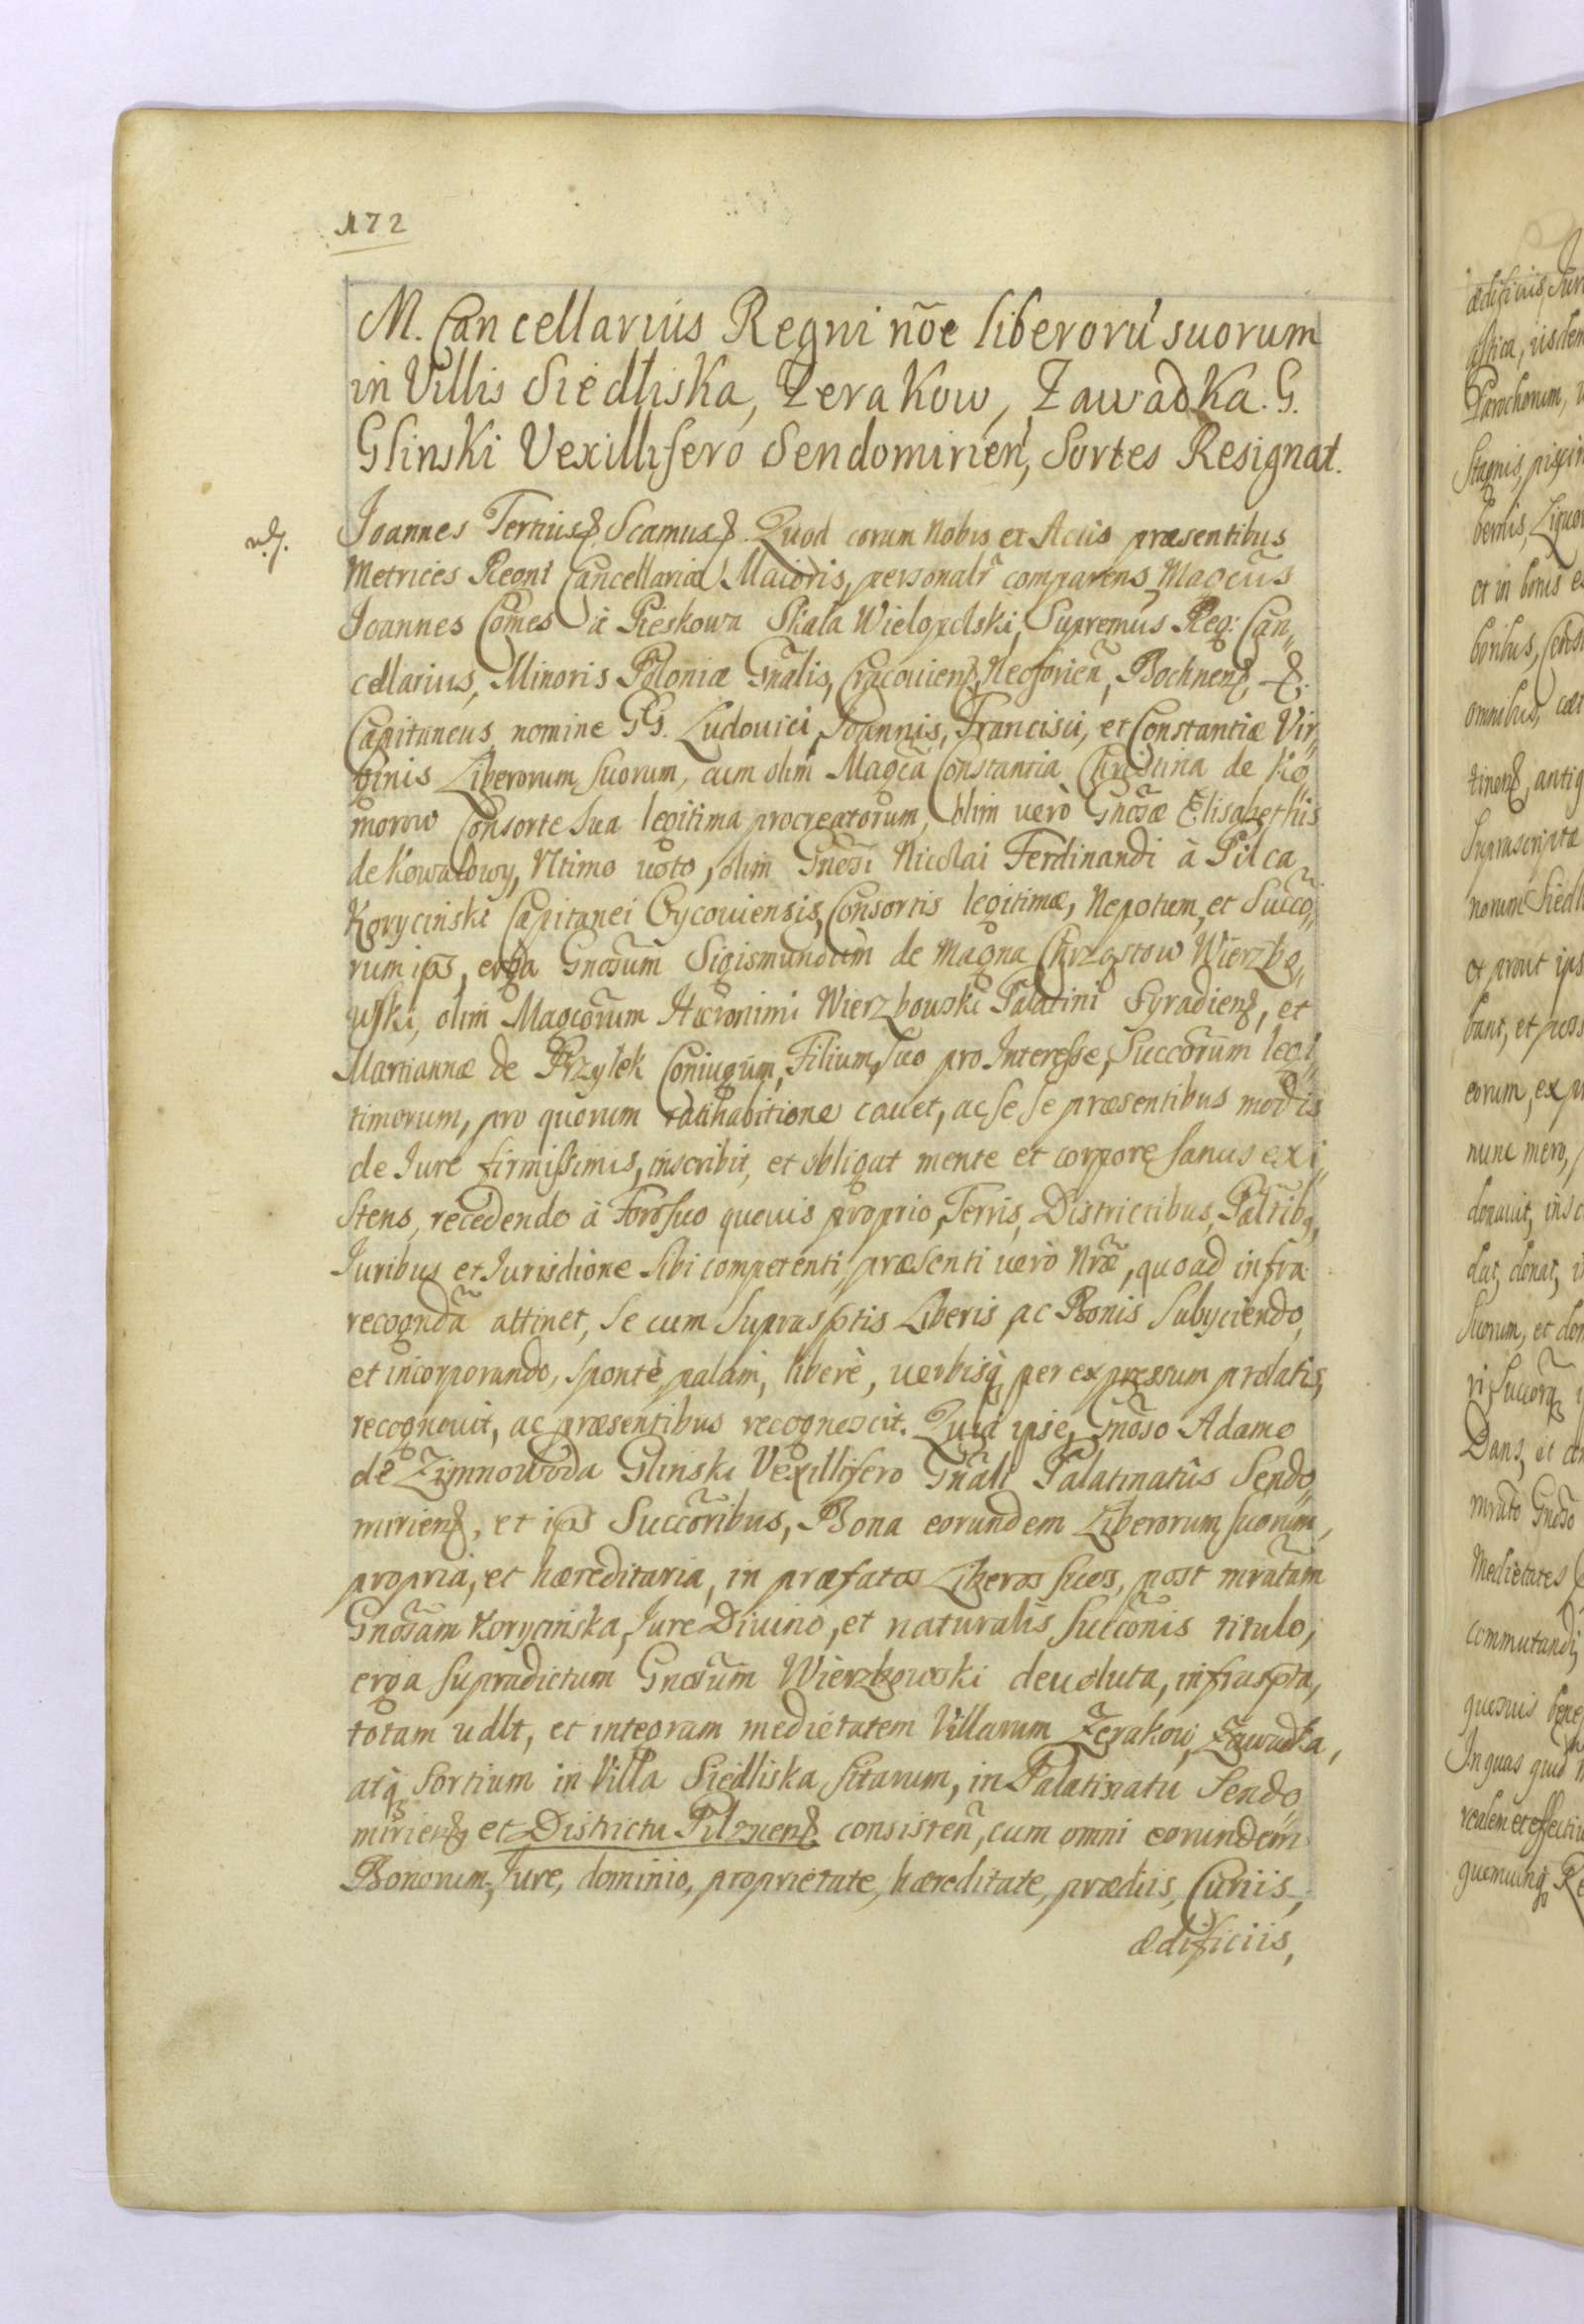 172
M. Cancellarius Regni nõe liberorũ suorum
in Villis Siedliska, Zerakow, Zawadka. G.
Glinski Vexillifero Sendomirień, Sortes Resignat.
Joannes Tertius Scamus. Quod coram Nobis et Actis præsentibus
Metrices Regni Cancellariæ Maioris, personalr̃ comparens Magcũs
Joannes Comes à Pieskowa Skała Wielopolski, Supremus Reg: Can„
cellarius, Minoris Poloniæ Gñalis, Cracouien, Neoforień, Bochnen,
Capitaneus, nomine GG. Ludouici, Joannis, Francisci, et Constantiæ Vir„
ginis Liberorum suorum, cum olim Magcã Constantia Christina de Ko„
morow Consorte sua legitima procreatorum, olim uerò Gnosæ Elisabethis
de Kowalowy, Vltimo uoto, olim Gnosi Nicolai Ferdinandi à Pilca
Koryciński Capitanei Oycouiensis, Consortis legitimæ, Nepotum, et Succo„
rum ips, erga Gnosum Sigismundum de Magna Chrząstow Wierzbo„
uski, olim Magcorum Hieronimi Wierzbouski Palatini Syradien, et
Martiannæ de Przyłek Coniugum, Filium, suo pro Interesse, Succorum legi„
timorum, pro quorum ratihabitione cauet, ac se se præsentibus modis
de Iure firmissimis, inscribit, et obligat mente et corpore sanus exi„
stens, recedendo à Foro suo quouis proprio, Terris, Districtibus, Paltibq,
Iuribus et Iurisdione sibi competenti, præsenti uerò Nrõ, quoad infra
recogndã attinet, se cum suprasptis Liberis ac Bonis subyciendo,
et incorporando, spontè, palàm, liberè, uerbisq̃ per expressum prolatis,
recognouit, ac præsentibus recognoscit. Quia ipse, Gnoso Adamo
de Zimnowoda Glinski Vexillifero Gñali Palatinatûs Sendo„
mirien, et ips Succoribus, Bona eorundem Liberorum suorum,
propria, et hæreditaria, in præfatos Liberos suos, post mratam
Gnosam Korycinska, Iure Diuino, et naturalis Succonis titulo,
erga supradictum Gnosum Wierzbowski deuoluta, infraspta,
totam udlt, et integram medietatem Villarum Zerakow, Zawadka,
atq̃ Sortium in Villa Siedliska sitarum, in Palatinatu Sendo„
mirien et Districtu Pilznen consisteñ, cum omni eorundem
Bonorum, Iure, dominio, proprietate, hæreditate, prædiis, Curiis,
ædificiis,